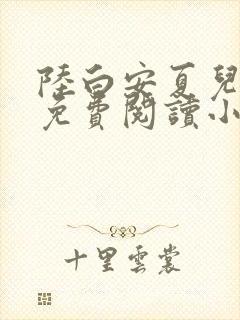 陸白安夏兒
免費閱讀小
十里雲裳